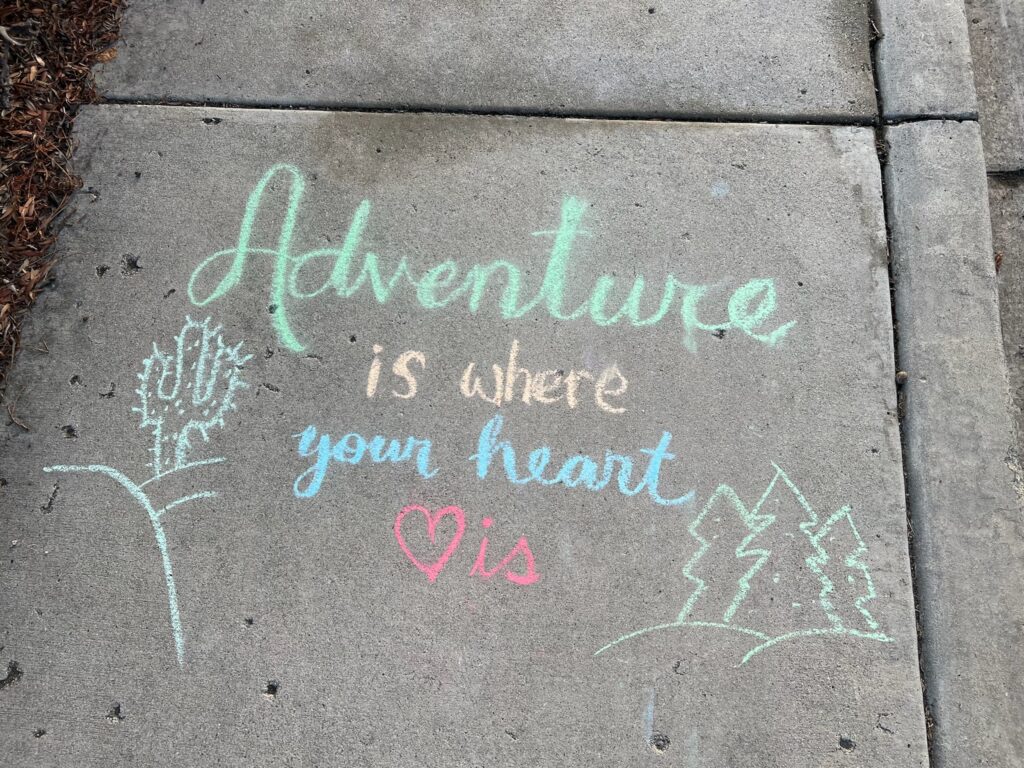 Adventure
is where
your heart
♡ is